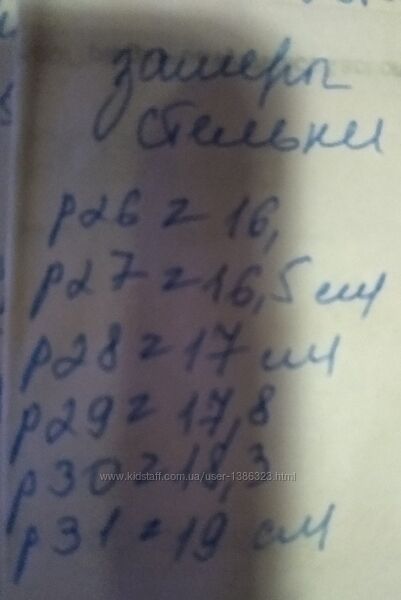 замеры
стельки
р26 = 16,
р27 = 16,5 см
р28 = 17 см
р29 = 17,8
www.kidstaff.com.ua/user-1386323.html
р30 = 18,3
р31 = 19 см